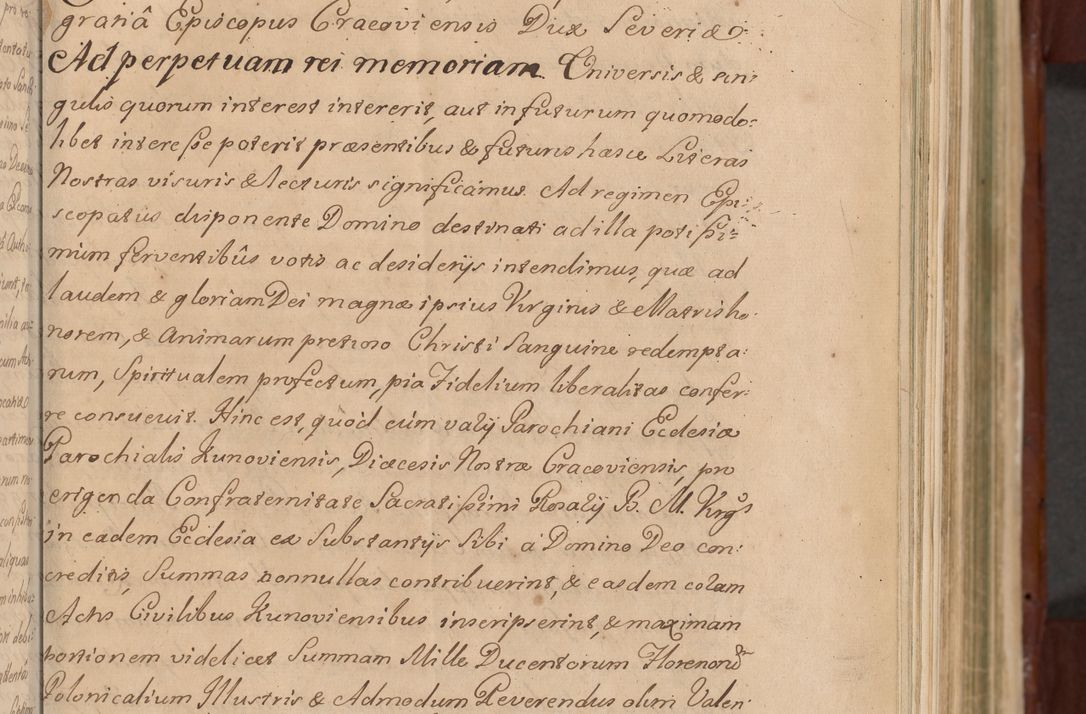 gratiâ Episcopus Cracoviensis Dux Severiæ
Ad perpetuam rei memoriam Universis & sin:
gulis quorum interest intererit, aut in futurum quomodo:
libet interesse poterit præsentibus & futuris hasce Literas
Nostras visuris & lecturis significamus. Ad regimen Epi:
scopatus disponente Domino destinati ad illa potissi:
mùm ferventibûs votis ac desiderijs intendimus, quæ ad
laudem & gloriam Dei magnæ ipsius Virginis & Matris ho:
norem, & Animarum pretioso Christi Sanguine redempta:
rum, Spiritualem profectum, pia Fidelium liberalitas confer:
re consuevit. Hinc est, quód cúm varij Parochiani Ecclesiæ
Parochialis Kunoviensis, Diæcesis Nostræ Cracoviensis, pro
erigenda Confraternitate Sacratissimi Rosarij B. M. Virgs
in eadem Ecclesia ex Substantijs Sibi á Domino Deo con:
creditis, Summas nonnullas contribuerint, & easdem coram
Actis Civilibus Kunoviensibus inscripserint, & maximam
portionem videlicet Summam Mille Ducentorum Florenorũ
Polonicalium Illustris & Admodum Reverendus olim Valen